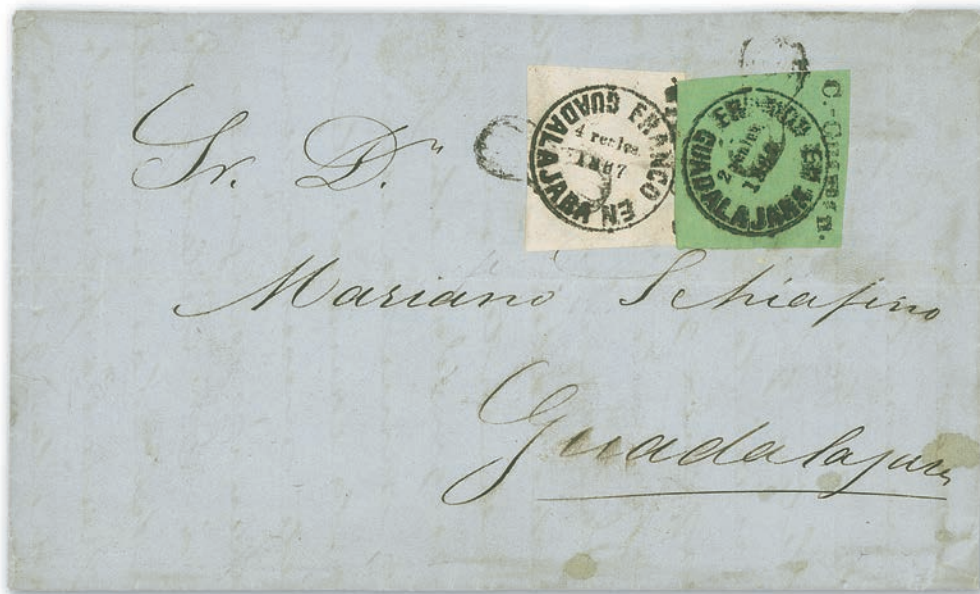 Sr. Dn
FRANCO EN GUADALAJARA
4 reales
1867
FRANCO EN GUADALAJARA
2 reales
Mariano Schiafino
Guadalajara